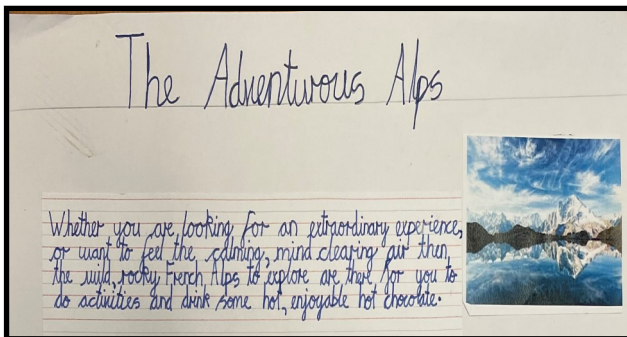 The Adventurous Alps
Whether you are looking for an extraordinary experience,
or want to feel the calming, mind clearing air then
the wild, rocky French Alps to explore are there for you to
do activities and drink some hot, enjoyable hot chocolate.